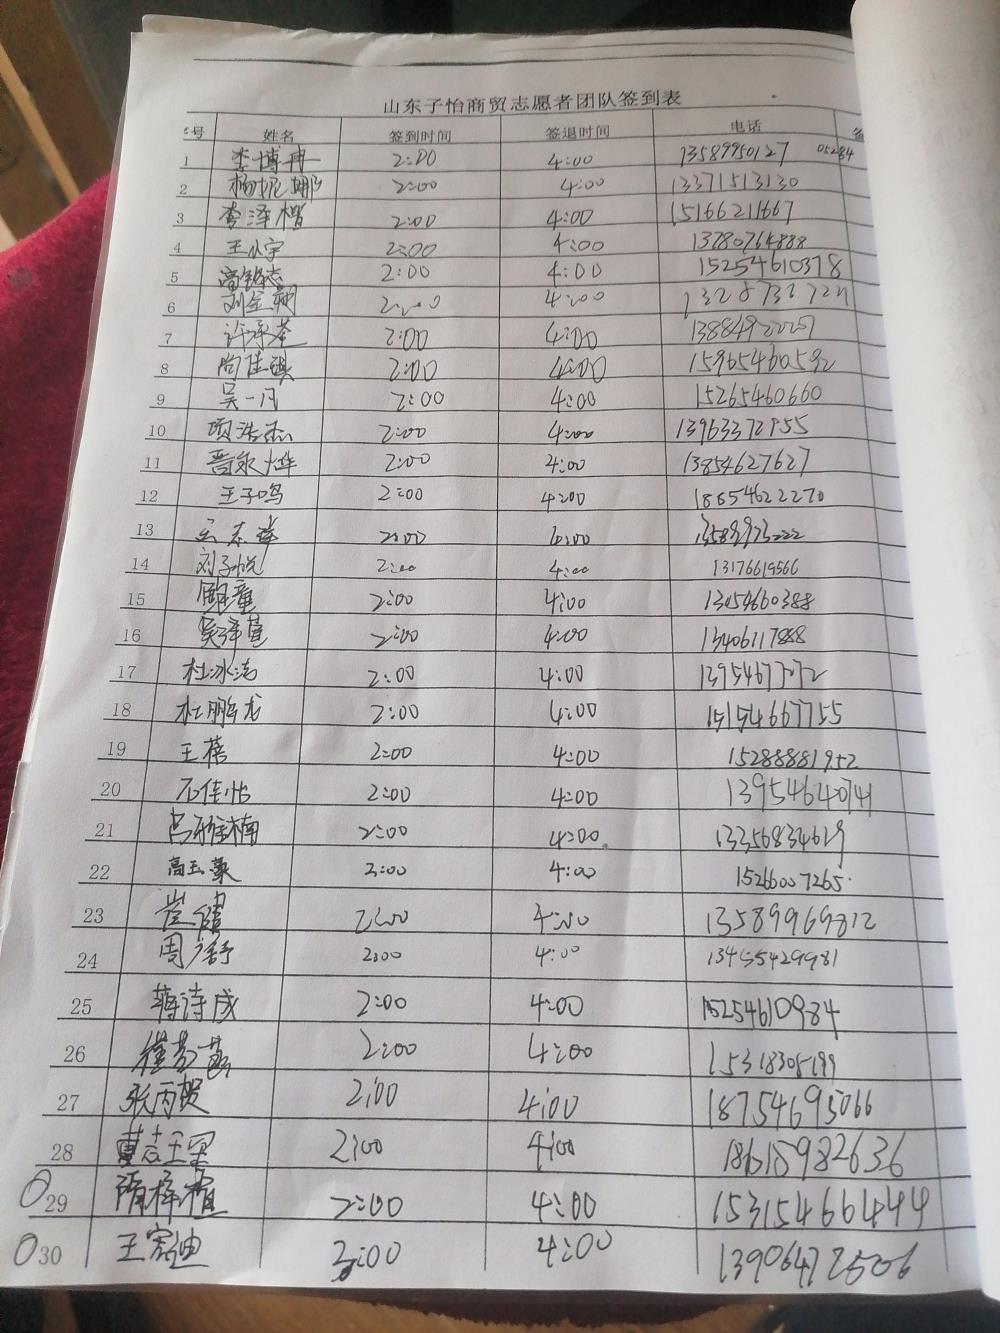 山东子怡商贸志愿者团队签到表
号 姓名 签到时间 签退时间 电话
1 李博冉 2:00 4:00 13589950127 05284
2 杨妮娜 2:00 4:00 13371513130
3 李泽楷 2:00 4:00 15166211667
4 王小宇 2:00 4:00 13780764888
5 2:00 4:00 15254610378
6 刘金朝 2:00 4:00
7 许承荃 2:00 4:00
8 尚佳琪 2:00 4:00 15965460592
9 吴一凡 2:00 4:00 15265460660
10 项浩杰 2:00 4:00 13963372955
11 2:00 4:00 13854627627
12 王子鸣 2:00 4:00 18654622270
13 2:00 13589973222
14 刘子悦 2:00 4:00 13176619566
15 2:00 4:00 13454660388
16 2:00 4:00 13406117888
17 杜冰洁 2:00 4:00 13954677072
18 杜鹏龙 2:00 4:00 15154667755
19 王蓓 2:00 4:00 15288881952
20 石佳怡 2:00 4:00 13954640741
21 2:00 4:00 13356834619
22 高玉蒙 2:00 4:00 15266007265
23 崔健 2:00 4:00 13589969812
24 周 2:00 4:00 13455429981
25 蒋诗成 2:00 4:00 15254610984
26 2:00 4:00 15318305199
27 张丙贺 2:00 4:00 18754695066
28 2:00 4:00 18615982636
29 隋梓楦 2:00 4:00 15315466444
30 王宏迪 2:00 4:00 13906472506